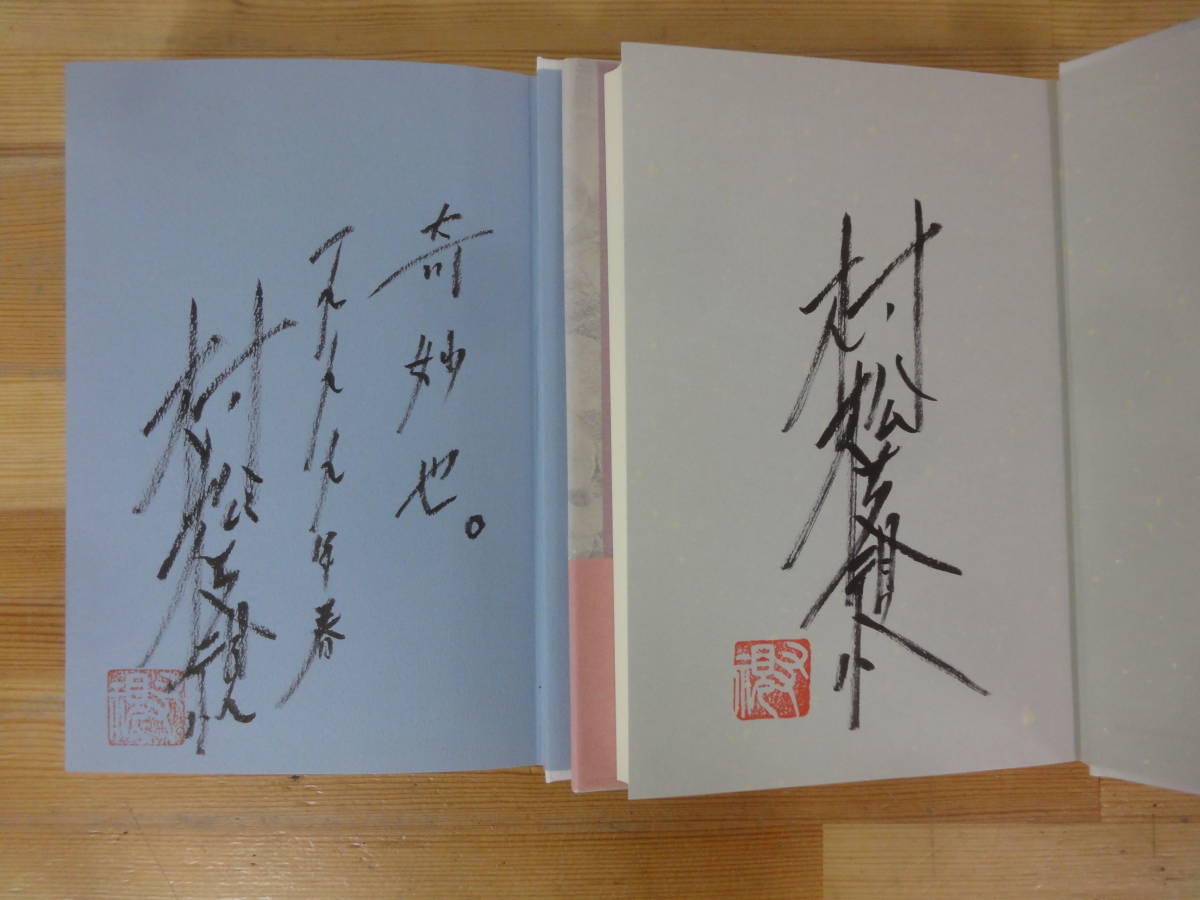 奇妙也。
一九九九年春
村松友視
村松友視
視
視